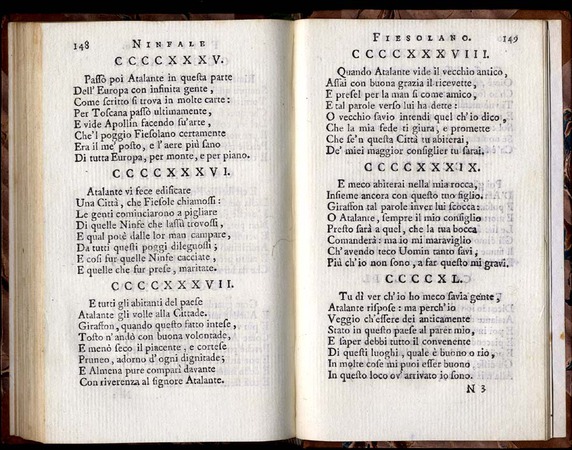 148 NINFALE
CCCCXXXV.
Passò poi Atalante in questa parte
Dell' Europa con infinita gente,
Come scritto si trova in molte carte:
Per Toscana passò ultimamente,
E vide Apollin facendo su' arte,
Che'l poggio Fiesolano certamente
Era il me' posto, e l' aere più sano
Di tutta Europa, per monte, e per piano.
CCCCXXXVI.
Atalante vi fece edificare
Una Città, che Fiesole chiamossi:
Le genti cominciarono a pigliare
Di quelle Ninfe che lassù trovossi,
E qual potè dalle lor man campare,
Da tutti questi poggi dileguossi;
E così fur quelle Ninfe cacciate,
E quelle che fur prese, maritate.
CCCCXXXVII.
E tutti gli abitanti del paese
Atalante gli volle alla Cittade.
Giraffon, quando questo fatto intese,
Tosto n'andò con buona volontade,
E menò seco il piacente, e cortese
Pruneo, adorno d'ogni dignitade;
E Almena pure comparì davante
Con riverenza al signore Atalante.
FIESOLANO. 149
CCCCXXXVIII.
Quando Atalante vide il vecchio antico,
Assai con buona grazia il ricevette,
E presel per la man sì come amico,
E tal parole verso lui ha dette:
O vecchio savio intendi quel ch'io dico,
Che la mia fede ti giura, e promette
Che se'n questa Città tu abiterai,
De' miei maggior consiglier tu sarai.
CCCCXXXIX.
E meco abiterai nella mia rocca,
Insieme ancora con questo tuo figlio.
Giraffon tal parole inver lui scocca:
O Atalante, sempre il mio consiglio
Presto sarà a quel, che la tua bocca
Comanderà: ma io mi maraviglio
Ch'avendo teco Uomin tanto savi,
Più ch'io non sono, a far questo mi gravi.
CCCCXL.
Tu dì ver ch'io ho meco savia gente,
Atalante rispose: ma perch'io
Veggio ch'essere dei anticamente
Stato in questo paese al parer mio,
E saper debbi tutto il convenente
Di questi luoghi, quale è buono o rio,
In molte cose mi puoi esser buono
In questo loco ov' arrivato io sono.
N 3